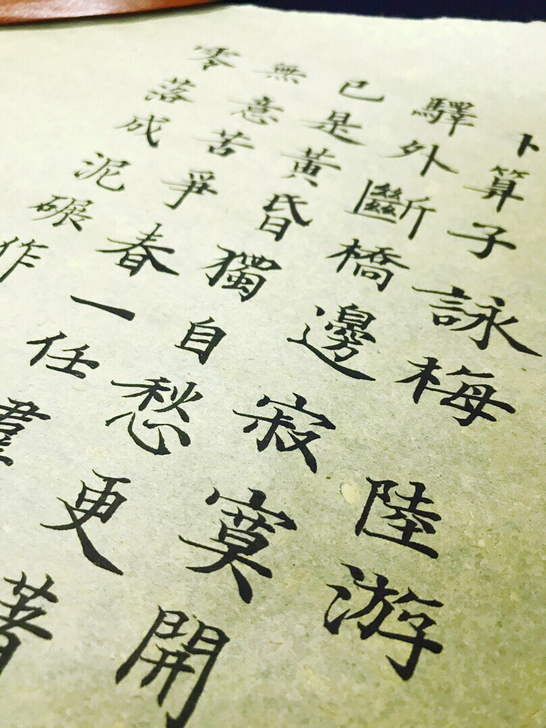 卜算子 詠梅 陸游
驛外斷橋邊寂寞開
已是黃昏獨自愁更著
無意苦爭春一任羣
零落成泥碾作